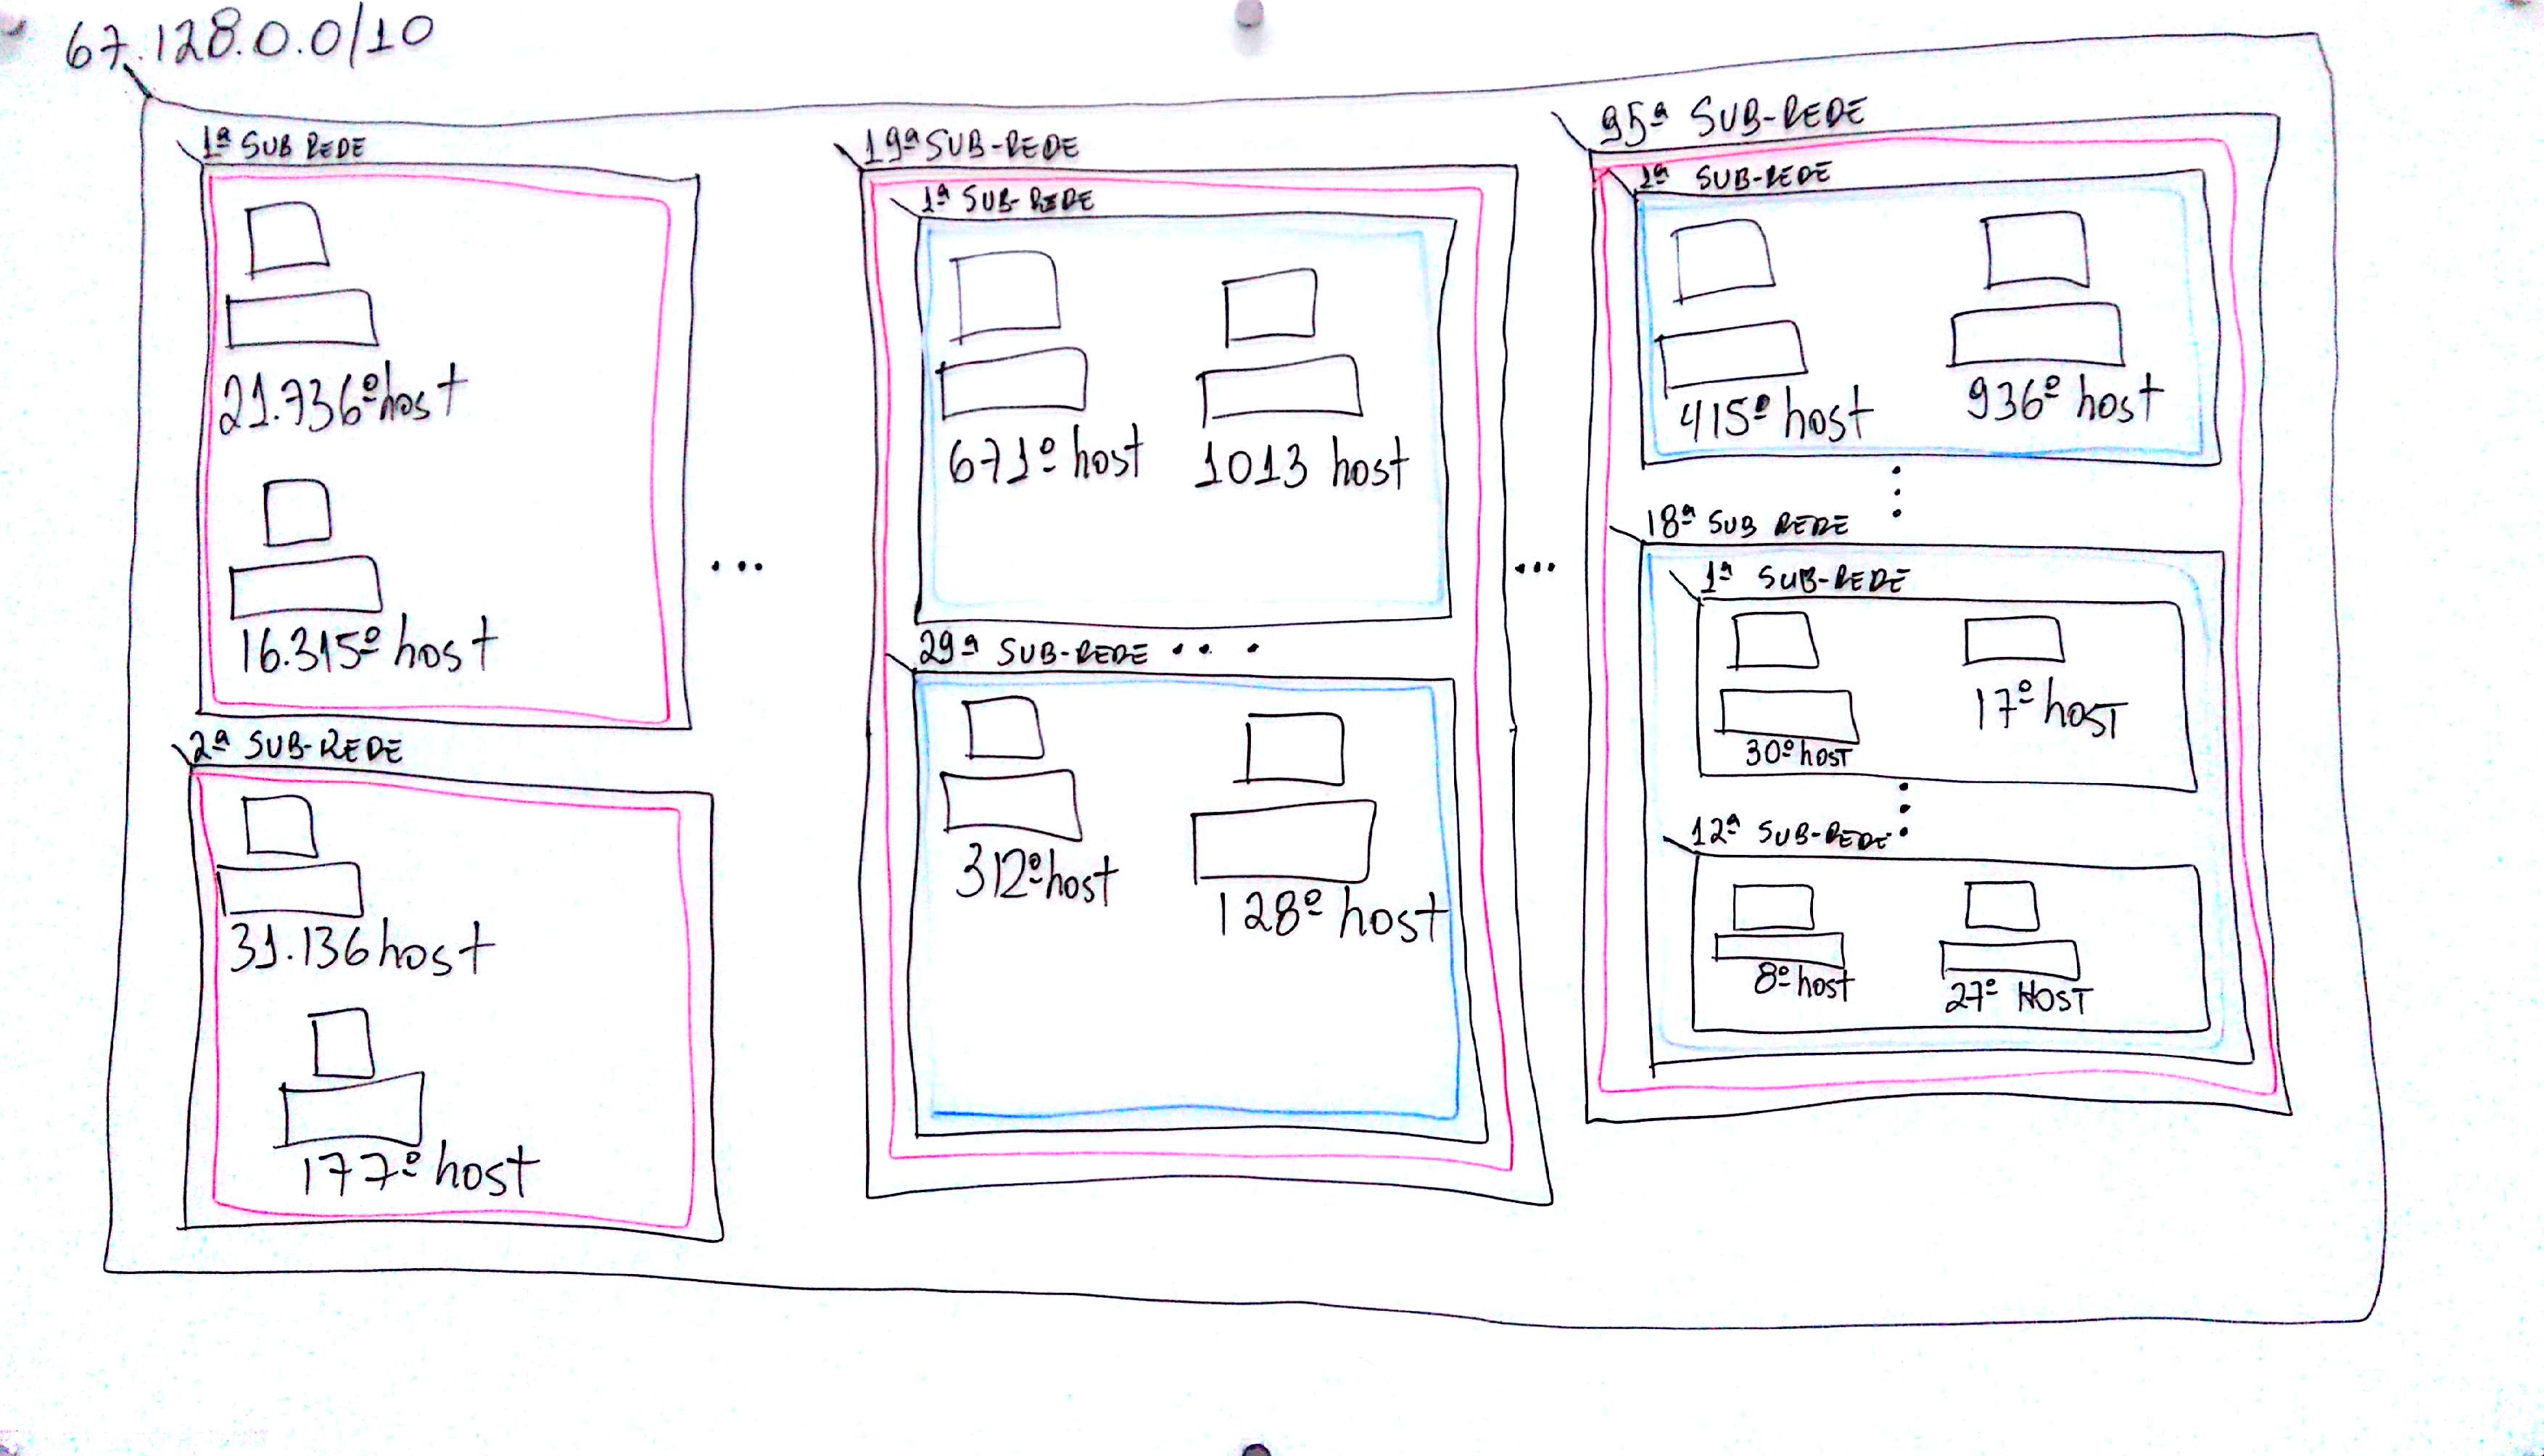 67.128.0.0/10
1ª SUB REDE
21.736º host
16.315º host
2ª SUB-REDE
31.136 host
177º host
...
19ª SUB-REDE
1ª SUB-REDE
671º host
1013 host
29ª SUB-REDE ...
312º host
128º host
...
95ª SUB-REDE
1ª SUB-REDE
415º host
936º host
18ª SUB REDE
1ª SUB-REDE
30º host
17º host
12ª SUB-REDE
8º host
27º HOST